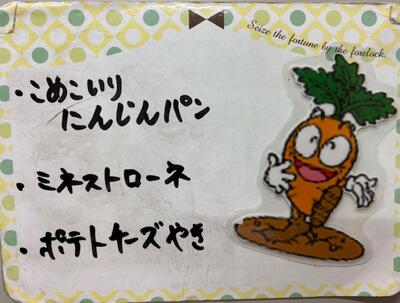 Seize the fortune by the forelock.
・こめこいり
にんじんパン
・ミネストローネ
・ポテトチーズやき